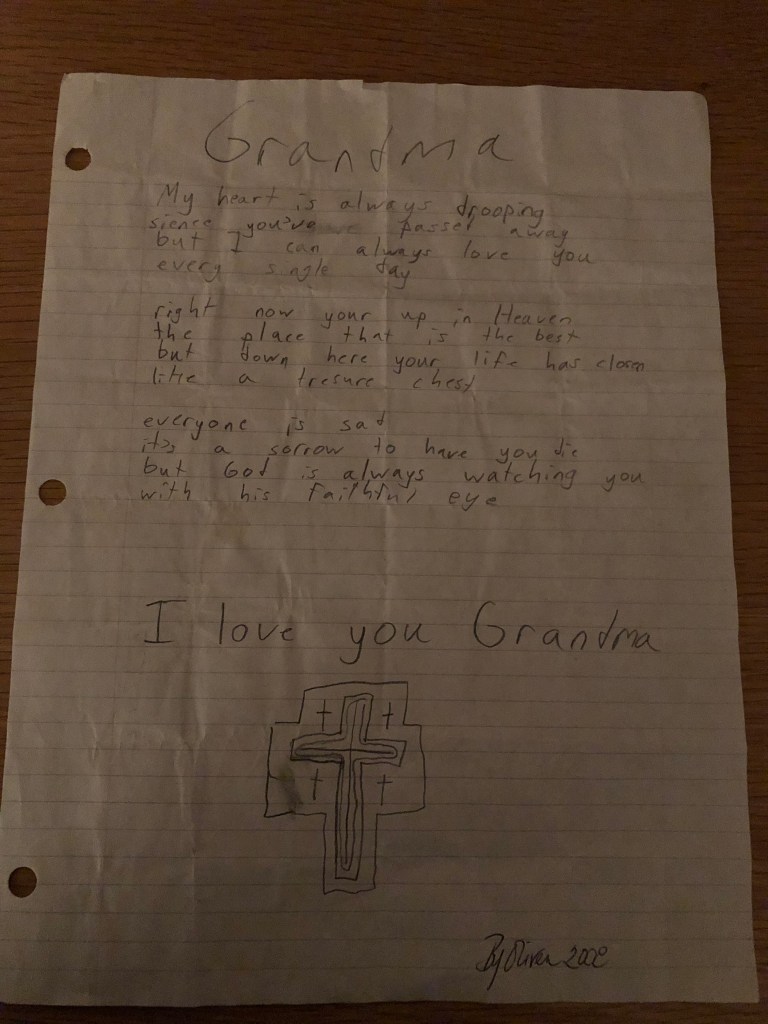 Grandma
My heart is always drooping
sience you've passet away
but I can always love you
every single day
right now your up in Heaven
the place that is the best
but down here your life has closen
like a tresure chest
everyone is sad
it's a sorrow to have you die
but God is always watching you
with his faithful eye
I love you Grandma
By Oliver